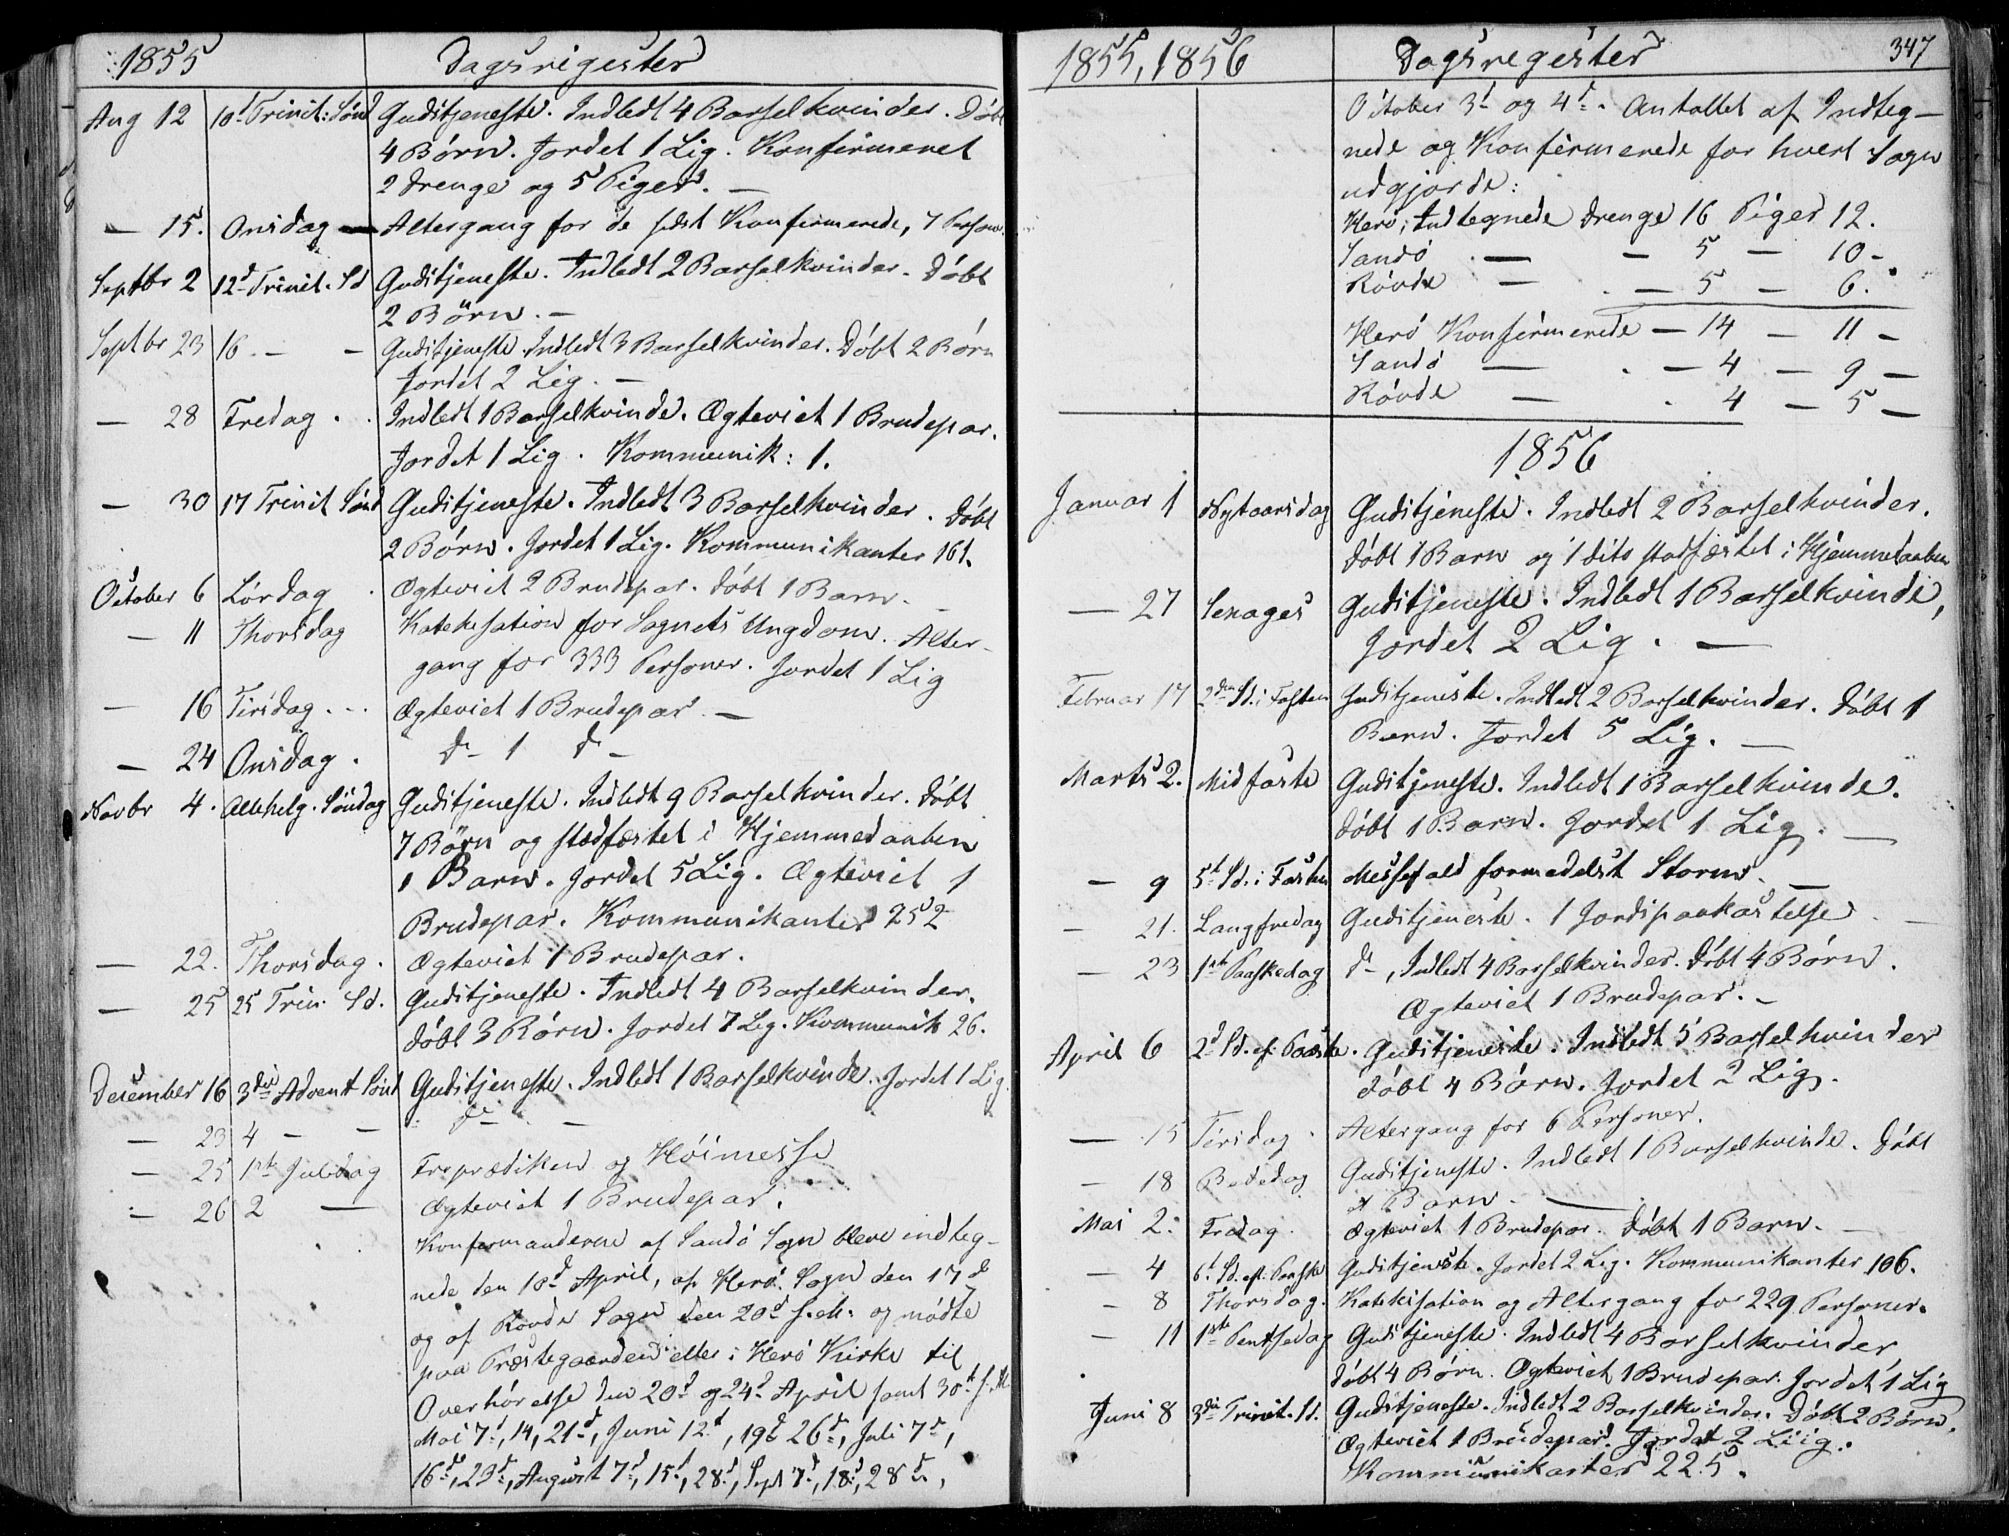 1855 Dagsregister
Aug 12 10d Trinit: Sönd Gudstjeneste. Indledt 4 Barselkvinder. Döbt
4 Börn. Jordet 1 Lig. Konfirmeret
2 Drenge og 5 Piger. —
— 15. Onsdag — Altergang for de sidst Konfirmerede, 7 Person
Septbr 2 12d Trinit. Sd Gudstjeneste. Indledt 2 Barselkvinder. Döbt
2 Börn. —
Septbr 23 16 — — Gudstjeneste. Indledt 3 Barselkvinder. Döbt 2 Börn
Jordet 2 Lig. —
— 28 Fredag . . Indledt 1 Barselkvinde. Ægteviet 1 Brudepar.
Jordet 1 Lig. Kommunik: 1.
— 30 17 Trinit Sönd Gudstjeneste. Indledt 3 Barselkvinder. Döbt
2 Börn. Jordet 1 Lig. Kommunikanter 161.
October 6 Lördag . Ægteviet 2 Brudepar. Döbt 1 Barn. —
— 11 Thorsdag Katekisation for Sognets Ungdom. Alter-
gang for 333 Personer. Jordet 1 Lig
— 16 Tirsdag . . . Ægteviet 1 Brudepar. —
— 24 Onsdag . d— 1 d—
Novbr 4. Allehelg. Söndag Gudstjeneste. Indledt 9 Barselkvinder. Döbt
7 Börn og stadfæstet i Hjemmedaaben
1 Barn. Jordet 5 Lig. Ægteviet 1
Brudepar. Kommunikanter 252
— 22. Thorsdag. Ægteviet 1 Brudepar.
— 25 25 Trin. Sd. Gudstjeneste. Indledt 4 Barselkvinder.
Döbt 3 Börn. Jordet 7 Lig. Kommunik 26.
December 16 3die Advent Sönd Gudstjeneste. Indledt 1 Barselkvinde. Jordet 1 Lig.
— 23 4 — — d— —
— 25 1ste Juledag Froprædiken og Höimesse
— 26 2 — Ægteviet 1 Brudepar.
Konfirmanderne af Sandö Sogn bleve indteg-
nede den 10d April, af Herö Sogn den 17d
og af Rövde Sogn den 20d s.M. og mödte
paa Præstegaarden eller i Herö Kirke til
Overhörelse den 20d og 24d April samt 30t s.M
Mai 7d, 14, 21d, Juni 12d, 19d 26d, Juli 7d,
16d, 23d, August 7d, 15d, 28d, Sept 7d, 18d, 28d,
1855, 1856 Dagsregester 347
October 3d og 4d. Antallet af Indteg-
nede og Konfirmerede for hvert Sogn
udgjorde:
Herö, Indtegnede Drenge 16 Piger 12.
Sandö — — 5 — 10 —
Rövde — — 5 — 6.
Herö Konfirmerede — 14 — 11 —
Sandö — — 4 — 9 —
Rövde — 4 — 5 —
1856
Januar 1 Nytaarsdag Gudstjeneste. Indledt 2 Barselkvinder.
Döbt 1 Barn og 1 dito stadfæstet i Hjemmedaaben
— 27 Sexages Gudstjeneste. Indledt 1 Barselkvinde,
Jordet 2 Lig. —
Februar 17 2den Sd. i Fasten Gudstjeneste. Indledt 2 Barselkvinder. Döbt 1
Barn. Jordet 5 Lig. —
Marts 2. Midfaste Gudstjeneste. Indledt 1 Barselkvinde.
Döbt 1 Barn. Jordet 1 Lig. —
— 9 5t Sd. i Fasten Messefald formedelst Storm. —
— 21. Langfredag Gudstjeneste. 1 Jordspaakastelse —
— 23 1ste Paaskedag d—, Indledt 4 Barselkvinder. Döbt 4 Börn.
Ægteviet 1 Brudepar. —
April 6 2d Sd. ef. Paaske. Gudstjeneste. Indledt 5 Barselkvinder
Döbt 4 Börn. Jordet 2 Lig.
— 15 Tirsdag . Altergang for 6 Personer.
— 18 Bededag Gudstjeneste. Indledt 1 Barselkvinde. Döbt
1 Barn. —
Mai 2. Fredag. Ægteviet 1 Brudepar. Döbt 1 Barn. —
— 4 6t Sd. ef. Paaske Gudstjeneste. Jordet 2 Lig. Kommunikanter 106.
— 8 Thorsdag. Katekisation og Altergang for 229 Personer.
— 11 1ste Pentsedag Gudstjeneste. Indledt 4 Barselkvinder
Döbt 4 Börn. Ægteviet 1 Brudepar. Jordet 1 Lig
Juni 8 3die Trinit. Sd. Gudstjeneste. Indledt 2 Barselkvinder. Döbt 2 Börn.
Ægteviet 1 Brudepar. Jordet 2 Liig.
Kommunikanter 225.